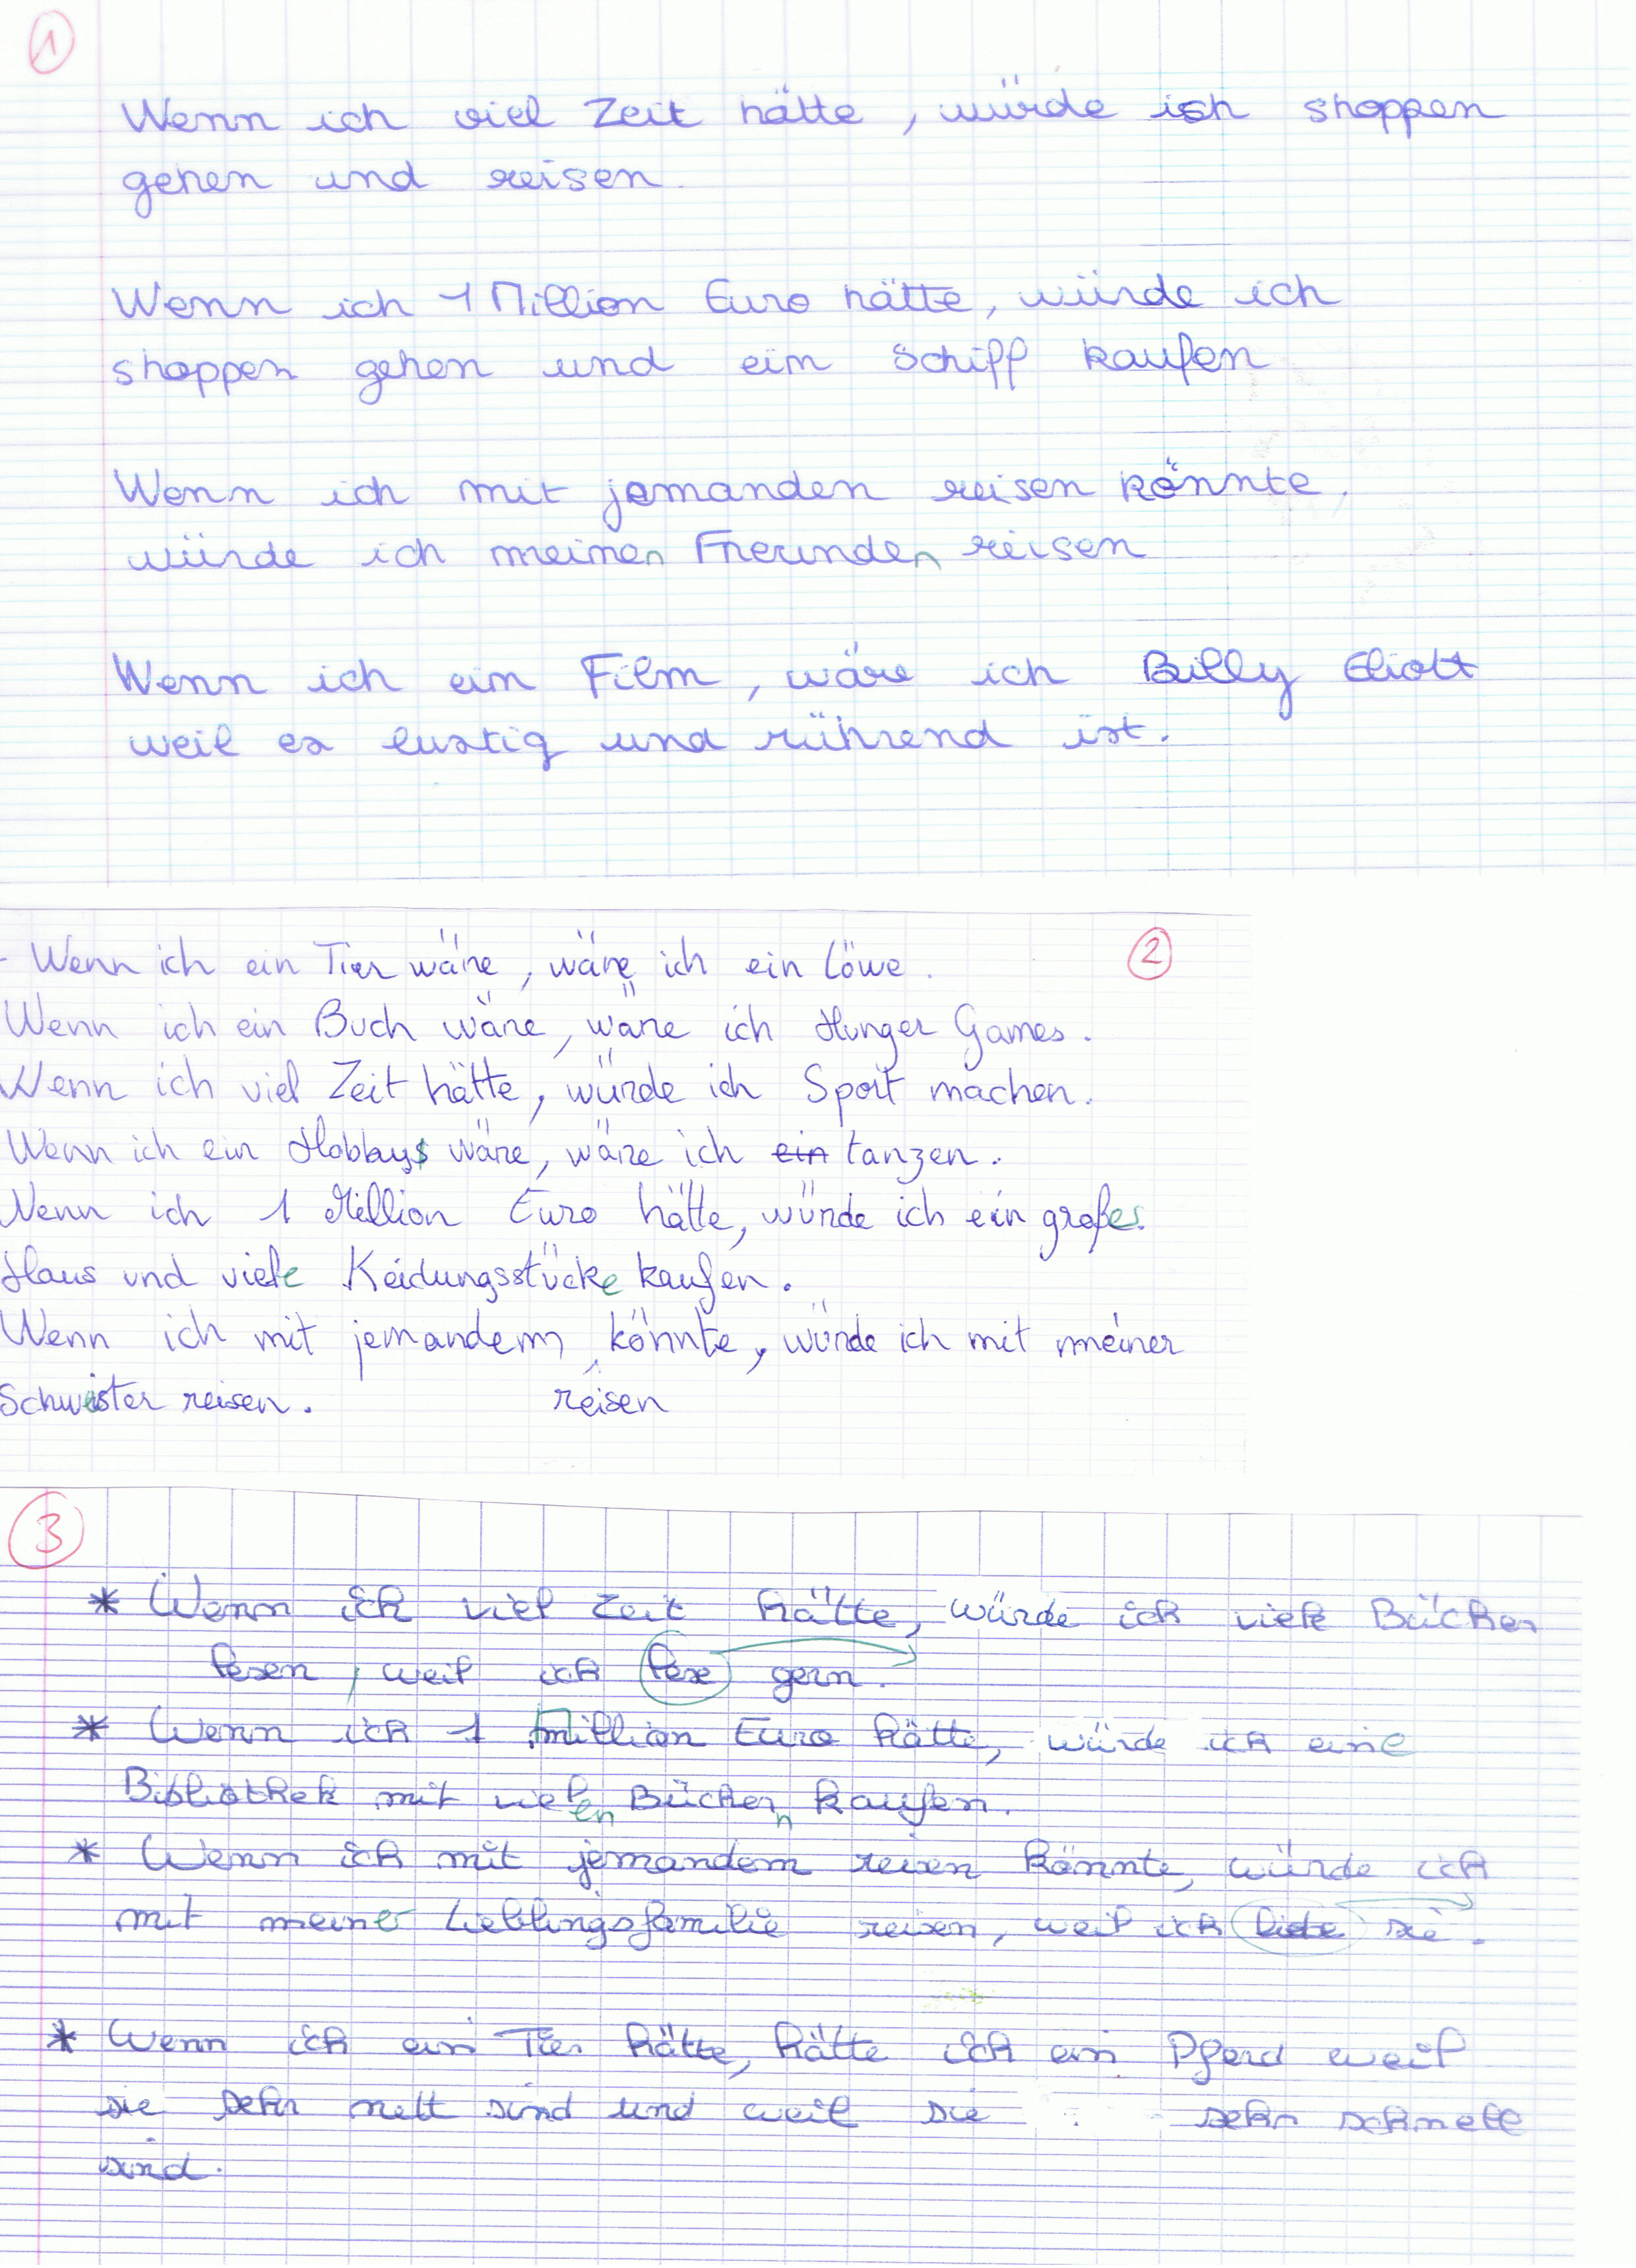 1
Wenn ich viel Zeit hätte, würde ich shoppen
gehen und reisen.
Wenn ich 1 Million Euro hätte, würde ich
shoppen gehen und ein Schiff kaufen
Wenn ich mit jemanden reisen könnte,
würde ich meinen Freunden reisen
Wenn ich ein Film, wäre ich Billy Eliott
weil es lustig und rührend ist.
2
- Wenn ich ein Tier wäre, wäre ich ein Löwe.
Wenn ich ein Buch wäre, wäre ich Hunger Games.
Wenn ich viel Zeit hätte, würde ich Sport machen.
Wenn ich ein Hobbys wäre, wäre ich ein tanzen.
Wenn ich 1 Million Euro hätte, würde ich ein großes
Haus und viele Keidungsstücke kaufen.
Wenn ich mit jemandem könnte, würde ich mit meiner
Schwester reisen. reisen
3
* Wenn ich viel Zeit hätte, würde ich viele Bücher
lesen, weil ich lese gern.
* Wenn ich 1 Million Euro hätte, würde ich eine
Bibliothek mit vielen Büchern kaufen.
* Wenn ich mit jemandem reisen könnte, würde ich
mit meiner Lieblingsfamilie reisen, weil ich liebe sie.
* Wenn ich ein Tier hätte, hätte ich ein Pferd weil
sie sehr nett sind und weil sie sehr schnell
sind.